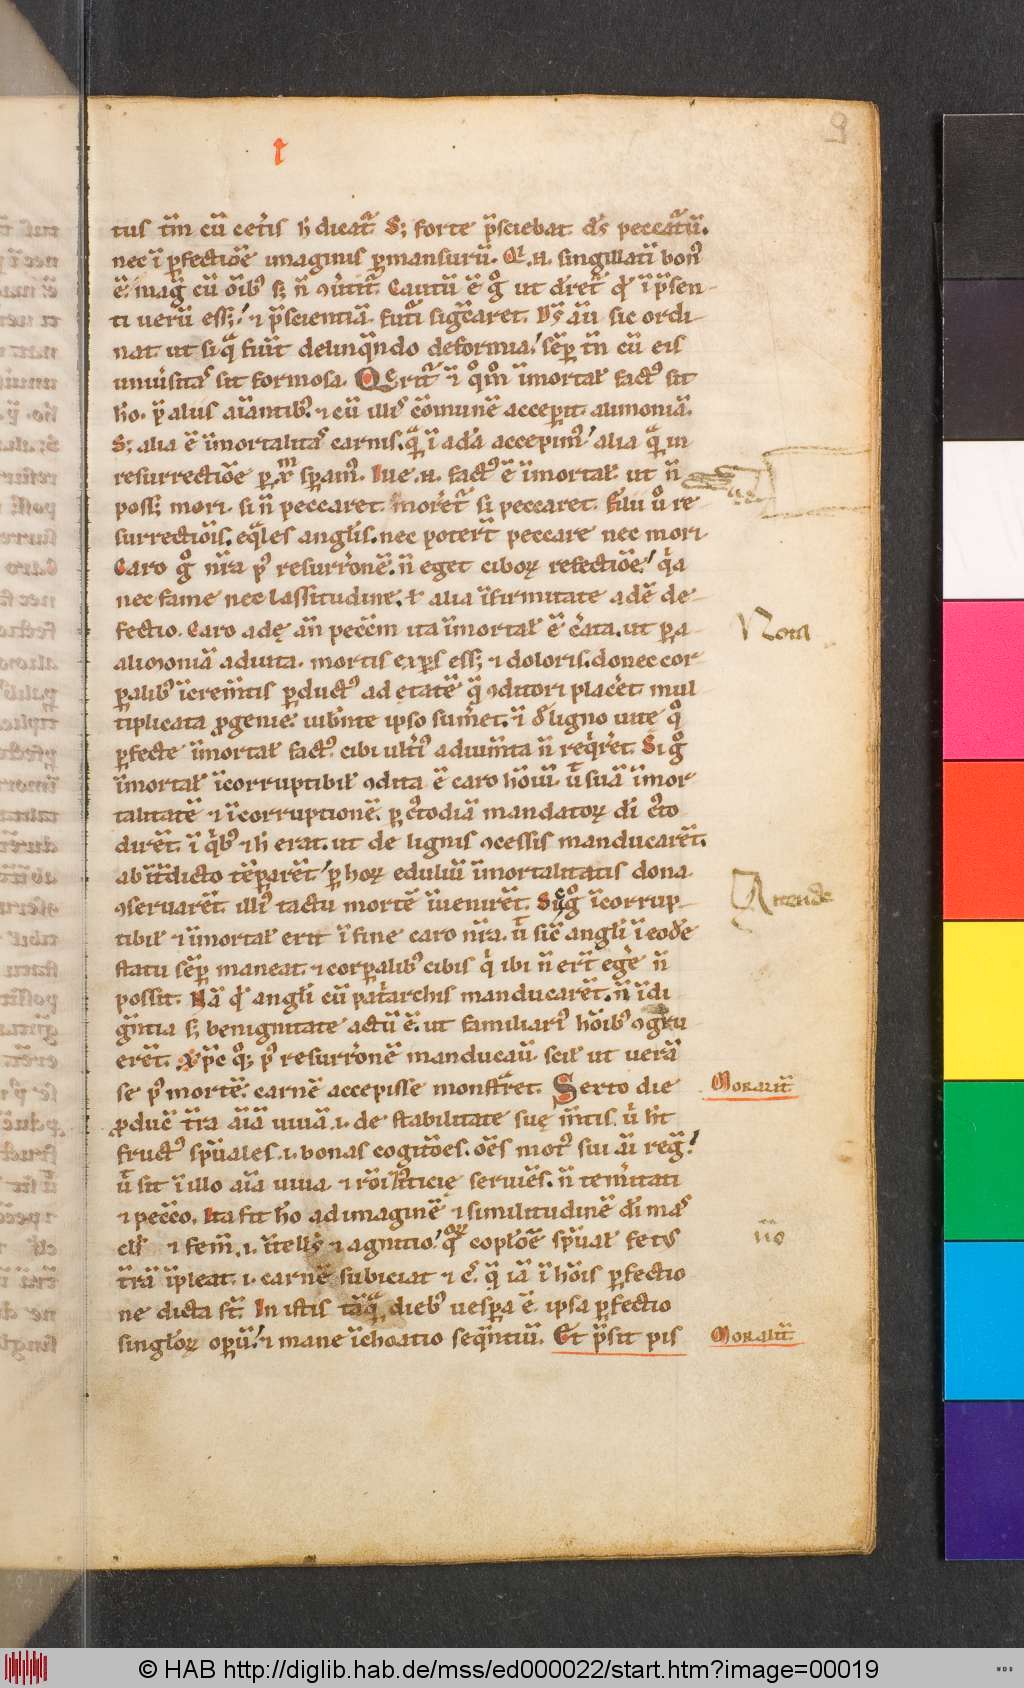 9
tus tm̄ cū cet̄is h̄ dicat᷑ S; forte p̄sciebat ds̄ peccatū.
nec ī ꝑfectiōe imaginis ꝑmansurū. singillatī bon᷒
ē. mag̃ cū oīb᷒ s; n̄ Cautū ē gͦ ut ī p̄sen-
ti uerū ess;. ⁊ p̄scientiā futͥi sig̃caret. aū sic ordi-
nat ut siqͣ fūit delinq̄ndo deformia. sēꝑ tn̄ cū eis
uniūsitas sit formosa. Q̄rit᷑ ī qͦm̄ īmortal̄ fact᷒ sit
hō. p̄ aliis aīantib᷒. ⁊ cū illis cōmunē accepit alimoniā.
S; alia ē īmortalitas carnis. qͣ̄ ī adā accepim᷒. alia qͣ̄ in
resurrectiōe ꝑ xp̄m spam᷒. fact᷒ ē īmortal̄ ut n̄
poss; mori. si n̄ peccaret. moret᷑ si peccaret. Filii ūo re-
surrectiōis. eq̄les anglis. nec poterīt peccare nec mori.
Caro gͦ nr̄a p᷒ resurr̄onē. n̄ eget ciboꝝ refectiōe. qͥa
nec fame nec lassitudine. ł alia īfirmitate adē de-
fectio. Caro adę an̄ pecc̄m ita īmortal̄ ē c̄ata. ut ꝑ a-
alimoniā adiuta. mortis expers ess; ⁊ doloris. donec cor-
ꝑalib᷒ īcrem̄tis ꝑduct᷒ ad etatē qͣ̄ ꝯditori placet. mul
tiplicata ꝓgenie. iub̄nte ipso sum̄et. ī d̄ ligno uite qͦ
ꝑfecte īmortal̄ fact᷒. cibi ult᷒i adium̄ta n̄ req̄ret. Si gͦ
īmortal̄ īcorruptibil̄ ꝯdita ē caro hōīū. ut̄ suā īmor
talitatē ⁊ īcorruptionē. ꝑ c᷒todiā mandatoꝝ di᷒ c᷒to
dirēt. ī qͥb᷒ ⁊ h̄ erat. ut de lignis ꝯcessis manducarēt.
ab īt̄dicto tēꝑarēt. ꝑ hoꝝ ediliū īmortalitatis dona
ꝯseruarēt. illi᷒ tactu mortē īuenirēt. Sic gͦ īcorrup-
tibil̄ ⁊ īmortal̄ erit ī fine caro nr̄a. ut̄ sic̄ angli ī eodē
statu sēꝑ maneat. ⁊ corꝑalib᷒ cibis qͥ ibi n̄ erīt ege n̄
possit. Nā qͥ angli cū pat̄archis manducarēt. n̄ īdi
g̃ntia s; benignitate actū ē. ut familiari᷒ hōīb᷒ ꝯgru
erēt. xp̄c qͦ; p᷒ resurr̄onē manducauit scil̄ ut uerā
se p᷒ mortē. carnē accepisse monstret. Serto die
ꝓduc̄ tr̄a aīā uiuā. i. de stabilitate suę m̄tis. ū h̄t
fruct᷒ spūales. i. bonas cogit̄oes. oēs mot᷒ sui aī reg̃.
ut̄ sit ī illo aīa uiua ⁊ rōi ⁊ iusticię seruiēs. n̄ tem̄itati
⁊ pecc̄o. Ita fit hō ad imaginē ⁊ similitudinē di᷒ mas
cls̄ ⁊ fem̄. i. ītells̄ ⁊ agnitio. qͦꝝ copl̄oē spūal̄ fet᷒
tr̄ā īpleat. i. carnē subiciat ⁊ c̄. qͣ̄ iā ī hōīs ꝑfectio
ne dicta st̄. In istis tāqͣ̄ dieb᷒ uespera ē. ipsa ꝑfectio
singl̄oꝝ oꝑū. ⁊ mane īchoatio seq̄ntiū. Et p̄sit pis
Nota
Attende
Moralit᷑
nō
Moralit᷑
© HAB http://diglib.hab.de/mss/ed000022/start.htm?image=00019